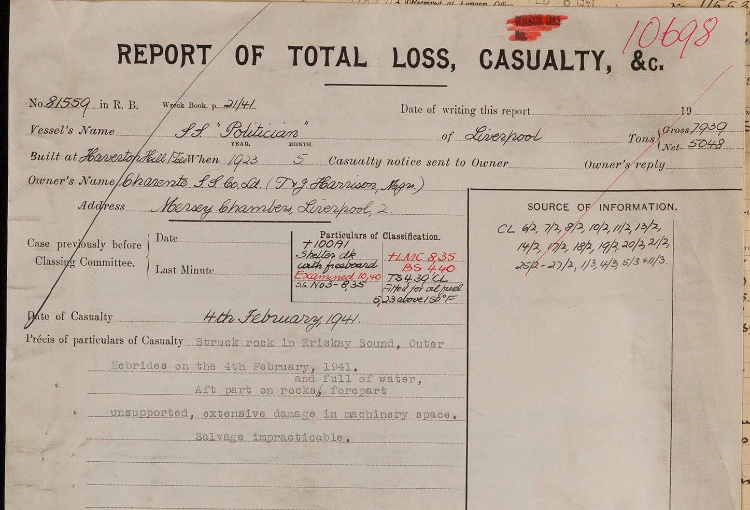 10698
REPORT OF TOTAL LOSS, CASUALTY, &c.
No. 81559 in R. B. Wreck Book, p. 21/41 Date of writing this report 19
Vessel's Name S.S. "Politician" of Liverpool Tons Gross 7939
Net 5048
YEAR. MONTH.
Built at Haverton Hill When 1923 5 Casualty notice sent to Owner Owner's reply
Owner's Name Charente S.S. Co. Ld. (T & J. Harrison, Mgrs.)
Address Mersey Chambers, Liverpool, 2.
SOURCE OF INFORMATION.
CL 6/2, 7/2, 8/2, 10/2, 11/2, 13/2,
14/2, 17/2, 18/2, 19/2, 20/2, 21/2,
25/2 - 27/2, 1/3, 4/3, 5/3 + 11/3.
Case previously before Classing Committee.
Date
Last Minute
Particulars of Classification.
+100A1
Shelter dk
with freeboard
Examined 10,40
SS No3 - 8,35
+LMC 8,35
BS 4.40
TS 4.39 CL
Fitted for oil fuel
5,23 above 150°F
Date of Casualty 4th February, 1941.
Précis of particulars of Casualty Struck rock in Eriskay Sound, Outer
Hebrides on the 4th February, 1941.
and full of water,
Aft part on rocks, forepart
unsupported, extensive damage in machinery space.
Salvage impracticable.